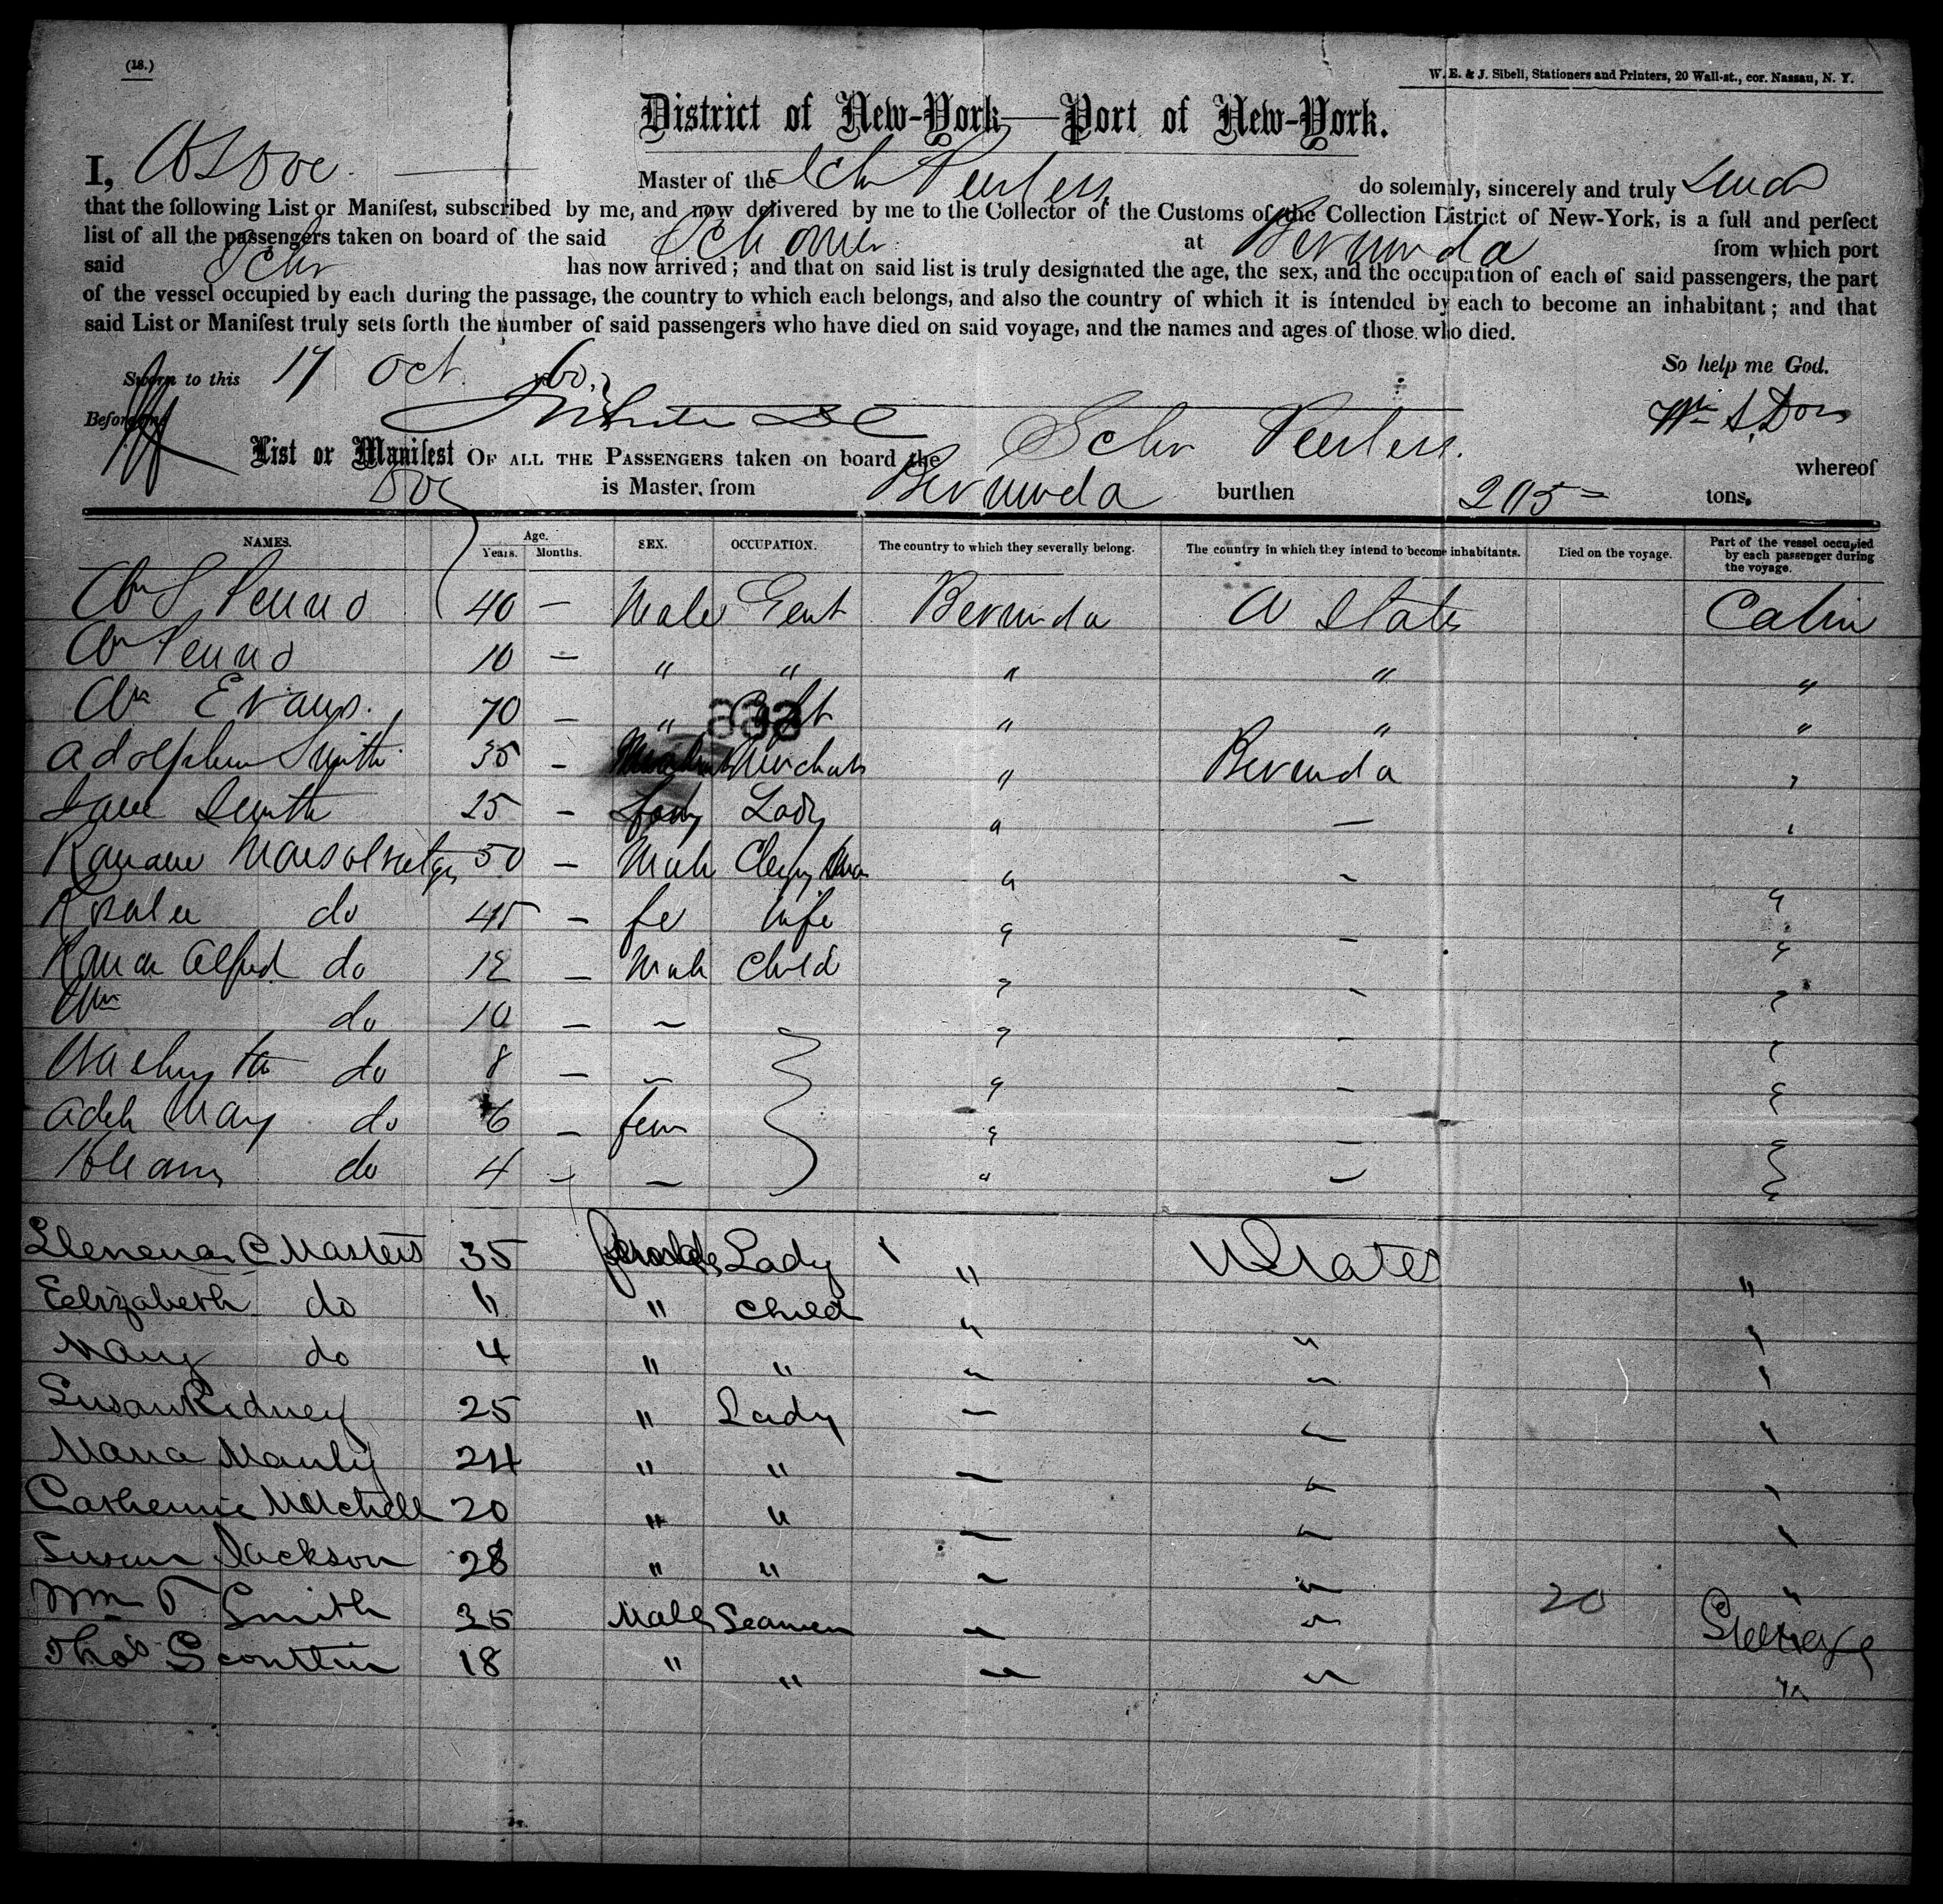 (18.)
W. E. & J. Sibell, Stationers and Printers, 20 Wall-st., cor. Nassau, N. Y.
District of New-York—Port of New-York.
I, Master of the Schr Peerless do solemnly, sincerely and truly
that the following List or Manifest, subscribed by me, and now delivered by me to the Collector of the Customs of the Collection District of New-York, is a full and perfect
list of all the passengers taken on board of the said Schooner at Bermuda from which port
said Schr has now arrived; and that on said list is truly designated the age, the sex, and the occupation of each of said passengers, the part
of the vessel occupied by each during the passage, the country to which each belongs, and also the country of which it is intended by each to become an inhabitant; and that
said List or Manifest truly sets forth the number of said passengers who have died on said voyage, and the names and ages of those who died.
So help me God.
Sworn to this 17 Oct 60
Before me
List or Manifest OF ALL THE PASSENGERS taken on board the Schr Peerless. whereof
is Master, from Bermuda burthen tons.
NAMES. Age. Years. Months. SEX. OCCUPATION. The country to which they severally belong. The country in which they intend to become inhabitants. Died on the voyage. Part of the vessel occupied by each passenger during the voyage.
Wm S Penno 40 — Male Gent Bermuda U States Cabin
Wm Penno 10 — " " " " "
Wm Evans. 70 — " " " "
Adolphus Smith 35 — Merchant " Bermuda "
Jane Smith 25 — Lady " — "
50 — Male Clergyman " - "
Rosalie do 45 — fe Wife " — "
Alfred do 12 — Male Child " - "
Wm do 10 — — " - "
Washington do 8 — — " - "
Adele Mary do 6 — fem " — "
do 4 — — " — "
C Masters 35 female Lady " U States "
Eelizabeth do 11 " Child " " "
Mary do 4 " " " " "
Susan Kidney 25 " Lady — " "
Maria Manly 24 " " — " "
Catherine Mitchell 20 " " — " "
Susan Jackson 28 " " — " "
Wm T Smith 35 Male Seamen — " 20 Steerage
Thos 18 " " — " "